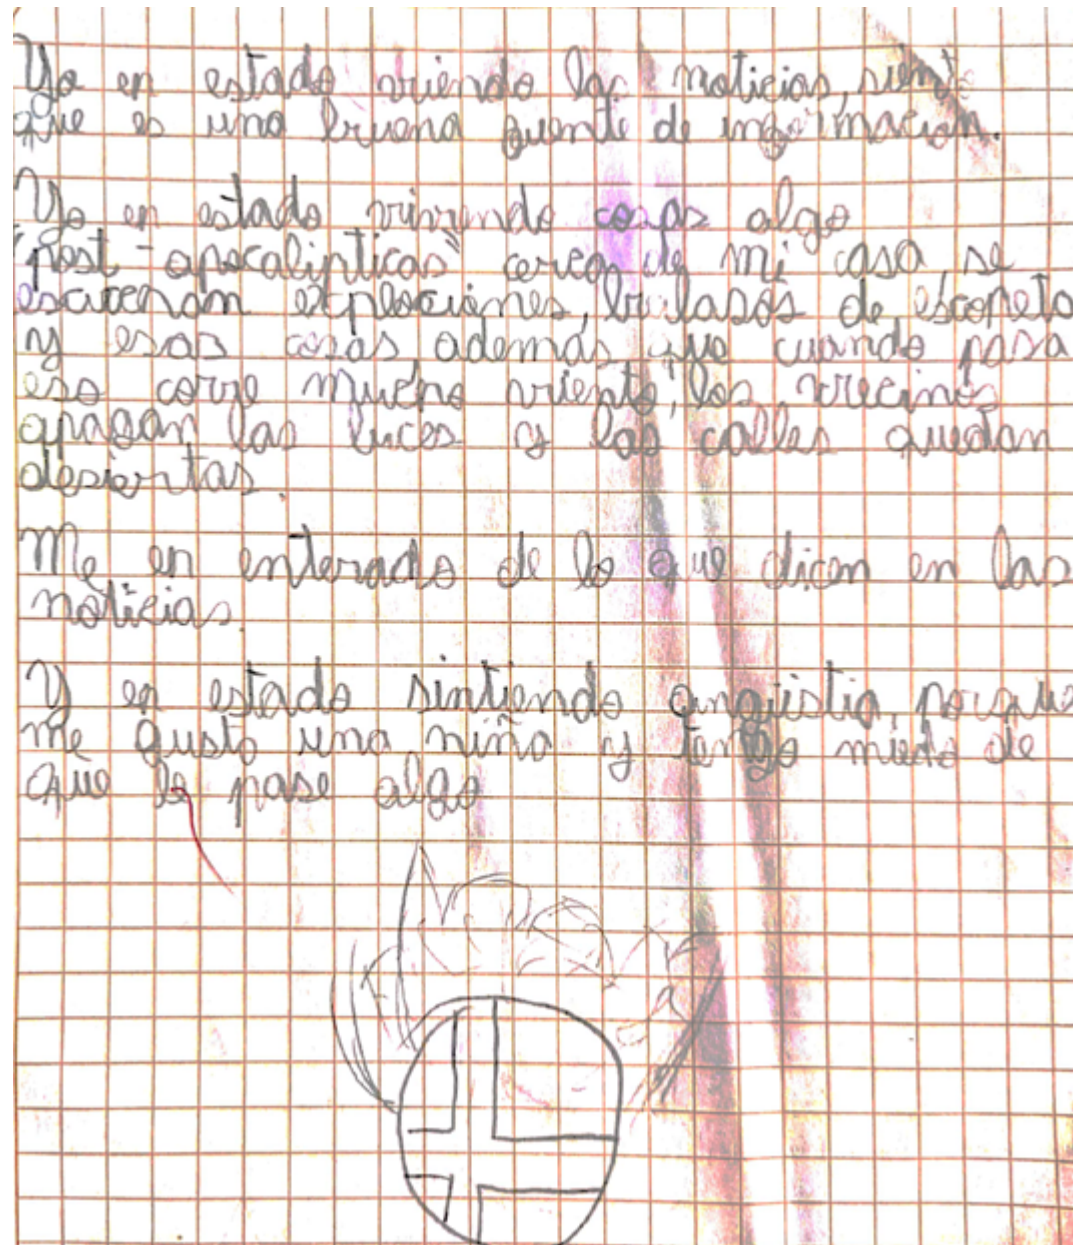 Yo en estado viendo las noticias, siento
que es una bruena fuente de información.
Yo en estado viviendo cosas algo
"post-apocalipticas" cerca de mi casa, se
escucenan explociones, brilasos de escopeta
y esas cosas, además que cuando pasa
eso corre mucho viento, los vrecinos
apagan las luces y las calles quedan
desiertas.
Me en enterado de lo que dicen en las
noticias.
Y en estado sintiendo angustia, porque
me gusto una niña y tengo miedo de
que le pase algo